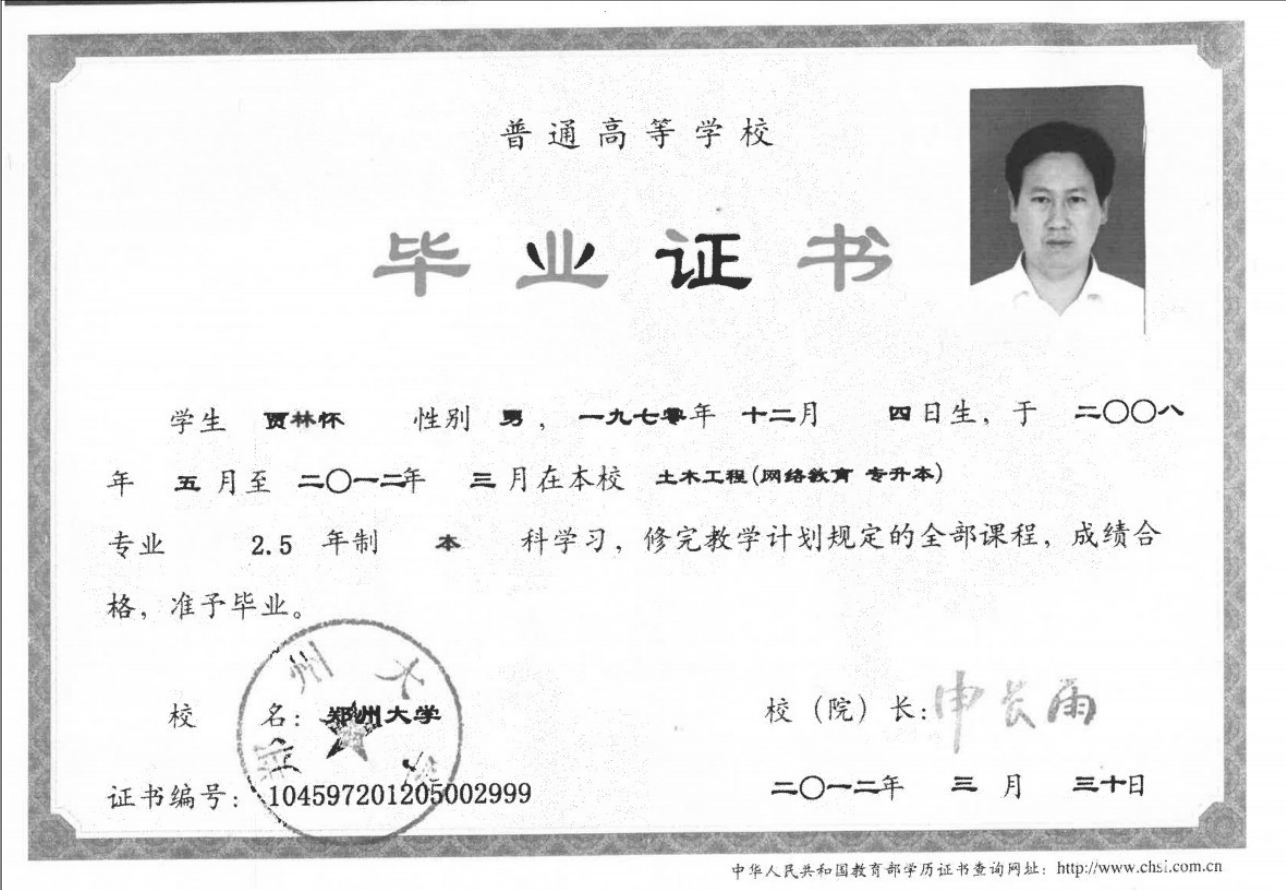 普通高等学校
毕业证书
学生 贾林怀 性别 男，一九七零年 十二月 四日生，于 二〇〇八
年 五月至 二〇一二年 三月在本校 土木工程(网络教育 专升本)
专业 2.5 年制 本 科学习，修完教学计划规定的全部课程，成绩合
格，准予毕业。
郑州大学
校 名：郑州大学
校（院）长：申长雨
证书编号：104597201205002999
二〇一二年 三月 三十日
中华人民共和国教育部学历证书查询网址：http://www.chsi.com.cn